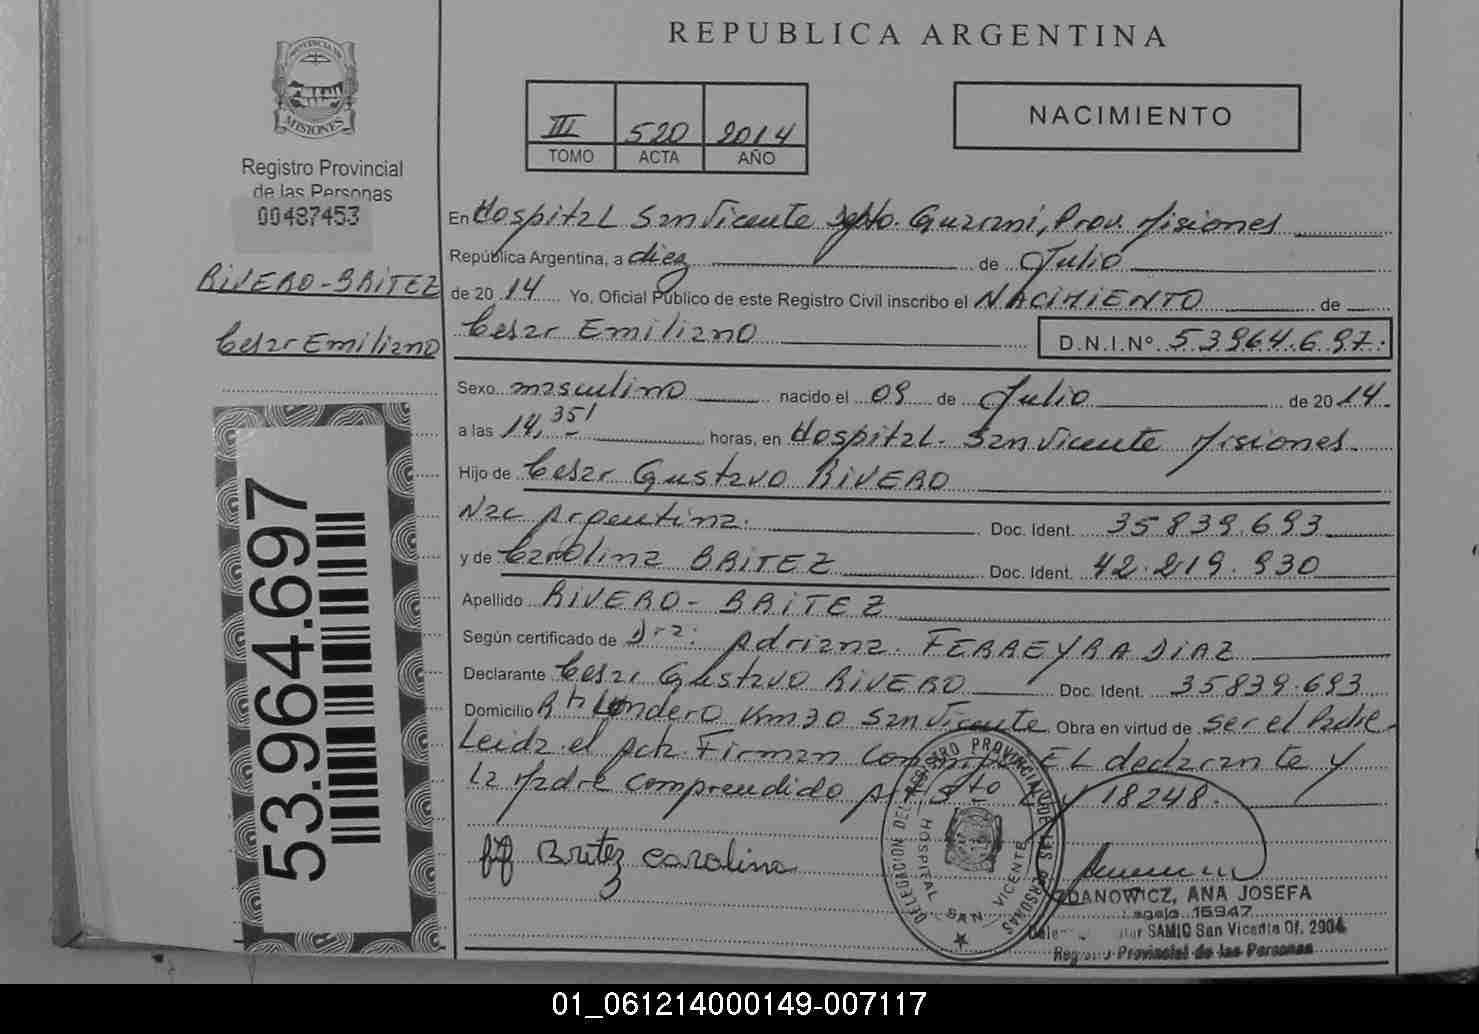 REPUBLICA ARGENTINA
PROVINCIA DE
MISIONES
Registro Provincial
de las Personas
00487453
RIVERO-BRITEZ
Cesar Emiliano
53.964.697
III 520 2014
TOMO ACTA AÑO
NACIMIENTO
En Hospital San Vicente Depto. Guarani, Prov. Misiones
República Argentina, a diez de Julio
de 2014 Yo, Oficial Público de este Registro Civil inscribo el NACIMIENTO de
Cesar Emiliano D.N.I.Nº 53964.697.
Sexo masculino nacido el 09 de Julio de 2014
a las 14,35' horas, en Hospital San Vicente Misiones.
Hijo de Cesar Gustavo RIVERO
Nac Argentina. Doc. Ident. 35839.693
y de Carolina BRITEZ Doc. Ident. 42.219.930
Apellido RIVERO-BRITEZ
Según certificado de Dra: Adriana FERREYRA DIAZ
Declarante Cesar Gustavo RIVERO Doc. Ident. 35839.693
Domicilio Km30 San Vicente Obra en virtud de ser el Padre
Leida el acta Firman EL declarante y
La Madre comprendido Ley 18248.
Britez Carolina
DELEGACION DEL REGISTRO PROVINCIAL DE LAS PERSONAS
HOSPITAL SAN VICENTE
ZDANOWICZ, ANA JOSEFA
Legajo 16947
SAMIC San Vicente Of. 2904
Registro Provincial de las Personas
01_061214000149-007117